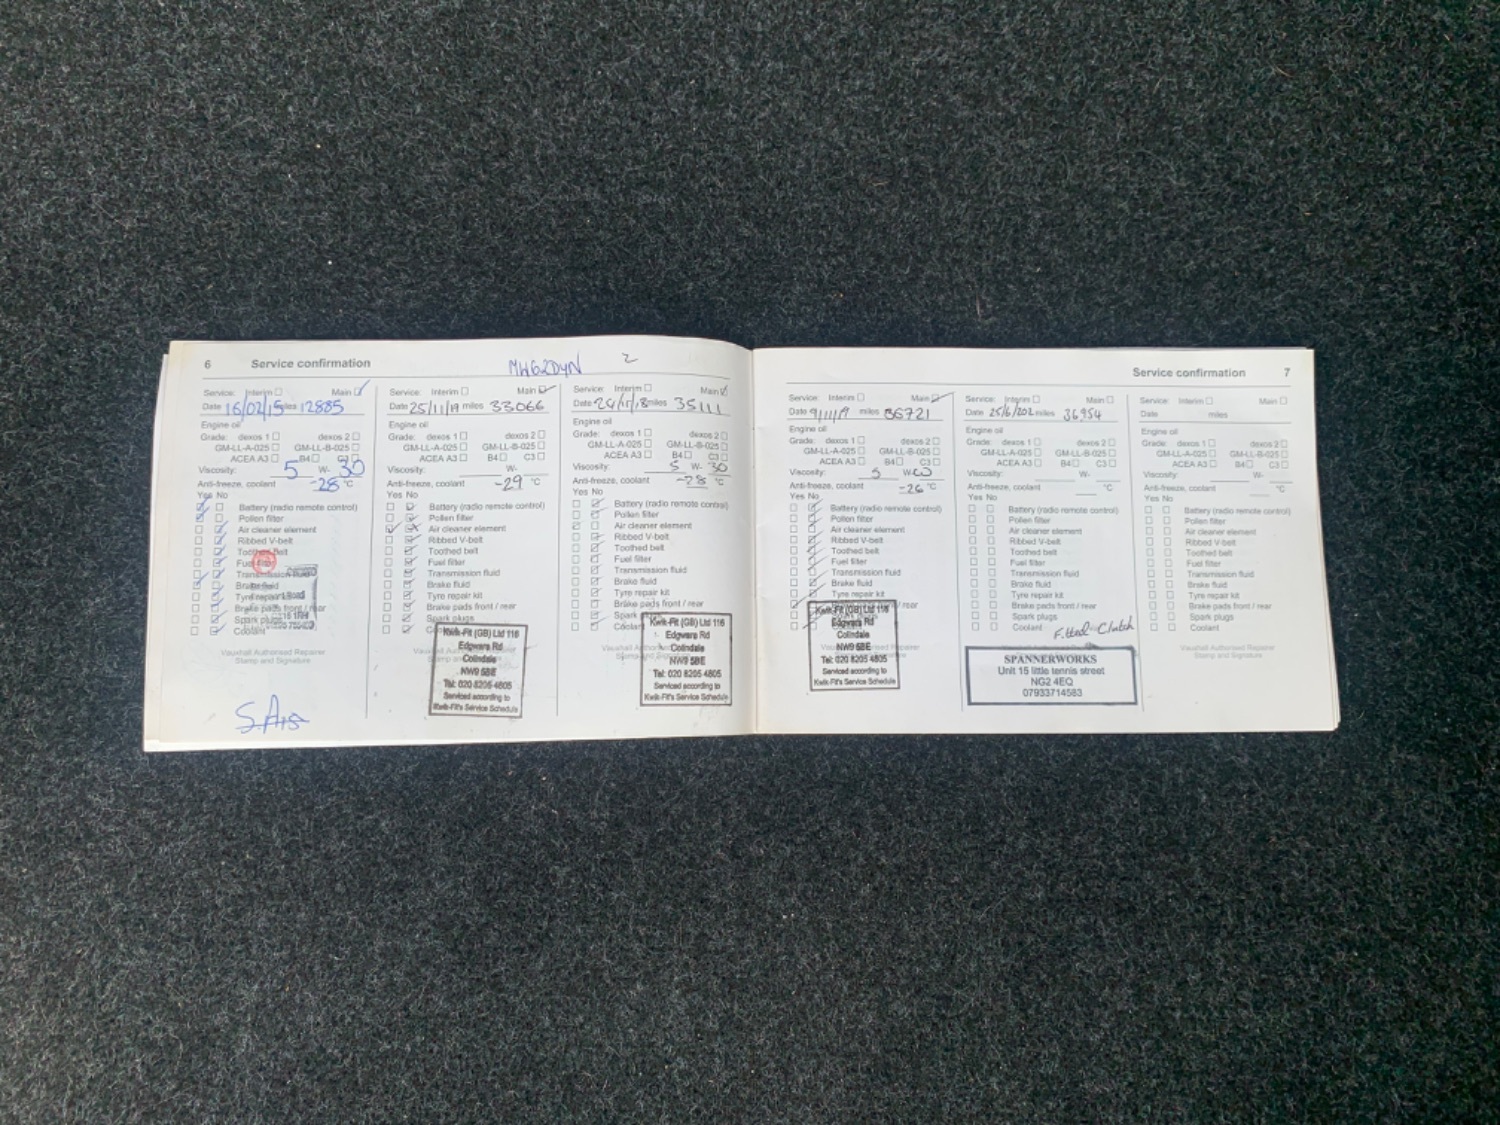 6 Service confirmation
MW62DYN
2
Service: Interim ☐ Main ☑
Date 16/02/15 miles 12885
Engine oil
Grade: dexos 1 ☐ dexos 2 ☐
GM-LL-A-025 ☐ GM-LL-B-025 ☐
ACEA A3 ☐ B4 ☐ C3 ☐
Viscosity: 5 W- 30
Anti-freeze, coolant -28 °C
Yes No
Battery (radio remote control)
Pollen filter
Air cleaner element
Ribbed V-belt
Toothed belt
Fuel filter
Transmission fluid
Brake fluid
Tyre repair kit
Brake pads front / rear
Spark plugs
Coolant
Vauxhall Authorised Repairer
Stamp and Signature
Service: Interim ☐ Main ☑
Date 25/11/17 miles 33066
Engine oil
Grade: dexos 1 ☐ dexos 2 ☐
GM-LL-A-025 ☐ GM-LL-B-025 ☐
ACEA A3 ☐ B4 ☐ C3 ☐
Viscosity: W-
Anti-freeze, coolant -29 °C
Yes No
Battery (radio remote control)
Pollen filter
Air cleaner element
Ribbed V-belt
Toothed belt
Fuel filter
Transmission fluid
Brake fluid
Tyre repair kit
Brake pads front / rear
Spark plugs
Kwik-Fit (GB) Ltd 116
Edgware Rd
Colindale
NW9 5BE
Tel: 020 8205 4805
Serviced according to
Kwik-Fit's Service Schedule
Service: Interim ☐ Main ☑
Date 24/11/18 miles 35111
Engine oil
Grade: dexos 1 ☐ dexos 2 ☐
GM-LL-A-025 ☐ GM-LL-B-025 ☐
ACEA A3 ☐ B4 ☐ C3 ☐
Viscosity: 5 W- 30
Anti-freeze, coolant -28 °C
Yes No
Battery (radio remote control)
Pollen filter
Air cleaner element
Ribbed V-belt
Toothed belt
Fuel filter
Transmission fluid
Brake fluid
Tyre repair kit
Brake pads front / rear
Spark plugs
Coolant
Kwik-Fit (GB) Ltd 116
Edgware Rd
Colindale
NW9 5BE
Tel: 020 8205 4805
Serviced according to
Kwik-Fit's Service Schedule
Service confirmation 7
Service: Interim ☐ Main ☑
Date 9/11/19 miles 35721
Engine oil
Grade: dexos 1 ☐ dexos 2 ☐
GM-LL-A-025 ☐ GM-LL-B-025 ☐
ACEA A3 ☐ B4 ☐ C3 ☐
Viscosity: 5 W-
Anti-freeze, coolant -26 °C
Yes No
Battery (radio remote control)
Pollen filter
Air cleaner element
Ribbed V-belt
Toothed belt
Fuel filter
Transmission fluid
Brake fluid
Tyre repair kit
Kwik-Fit (GB) Ltd 116
Edgware Rd
Colindale
NW9 5BE
Tel: 020 8205 4805
Serviced according to
Kwik-Fit's Service Schedule
Service: Interim ☐ Main ☐
Date 25/6/202 miles 36954
Engine oil
Grade: dexos 1 ☐ dexos 2 ☐
GM-LL-A-025 ☐ GM-LL-B-025 ☐
ACEA A3 ☐ B4 ☐ C3 ☐
Viscosity: W-
Anti-freeze, coolant °C
Yes No
Battery (radio remote control)
Pollen filter
Air cleaner element
Ribbed V-belt
Toothed belt
Fuel filter
Transmission fluid
Brake fluid
Tyre repair kit
Brake pads front / rear
Spark plugs
Coolant
Fitted Clutch
SPANNERWORKS
Unit 15 little tennis street
NG2 4EQ
07933714583
Service: Interim ☐ Main ☐
Date miles
Engine oil
Grade: dexos 1 ☐ dexos 2 ☐
GM-LL-A-025 ☐ GM-LL-B-025 ☐
ACEA A3 ☐ B4 ☐ C3 ☐
Viscosity: W-
Anti-freeze, coolant °C
Yes No
Battery (radio remote control)
Pollen filter
Air cleaner element
Ribbed V-belt
Toothed belt
Fuel filter
Transmission fluid
Brake fluid
Tyre repair kit
Brake pads front / rear
Spark plugs
Coolant
Vauxhall Authorised Repairer
Stamp and Signature